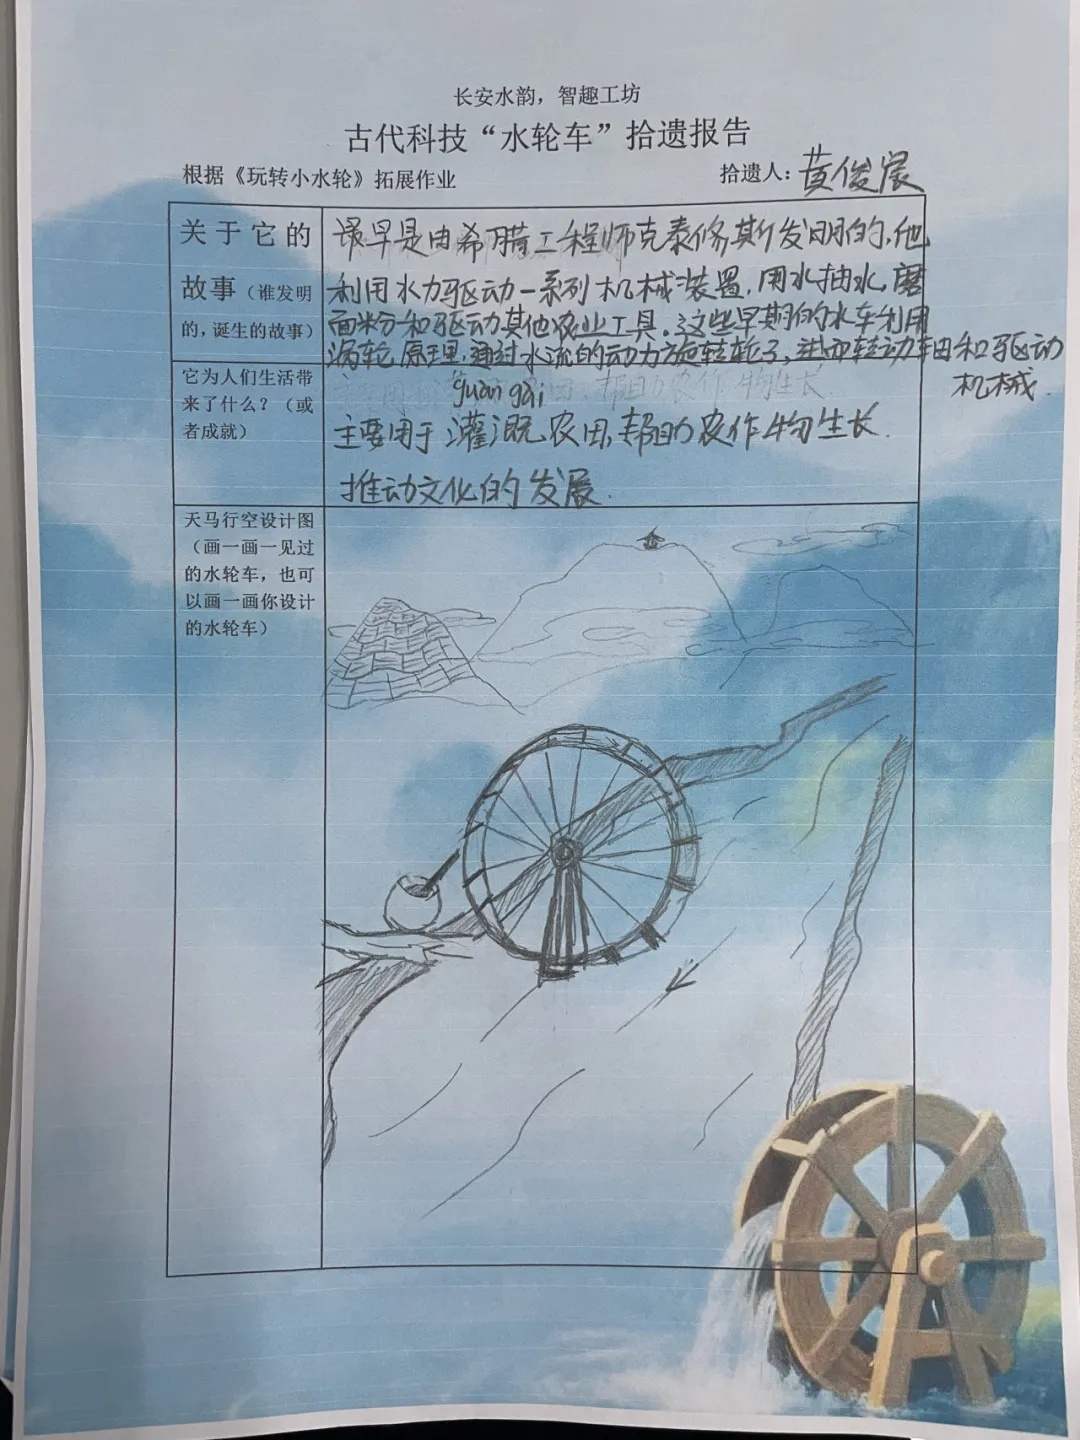 长安水韵，智趣工坊
古代科技“水轮车”拾遗报告
根据《玩转小水轮》拓展作业
拾遗人：黄俊宸
关于它的
故事（谁发明
的，诞生的故事）
最早是由希腊工程师克泰修斯发明的，他
利用水力驱动一系列机械装置，用水抽水，磨
面粉和驱动其他农业工具。这些早期的水车利用
涡轮原理，通过水流的动力旋转轮子，进而转动轴和驱动
机械．
它为人们生活带
来了什么？（或
者成就）
guàn gài
主要用于灌溉农田，帮助农作物生长．
推动文化的发展．
天马行空设计图
（画一画一见过
的水轮车，也可
以画一画你设计
的水轮车）